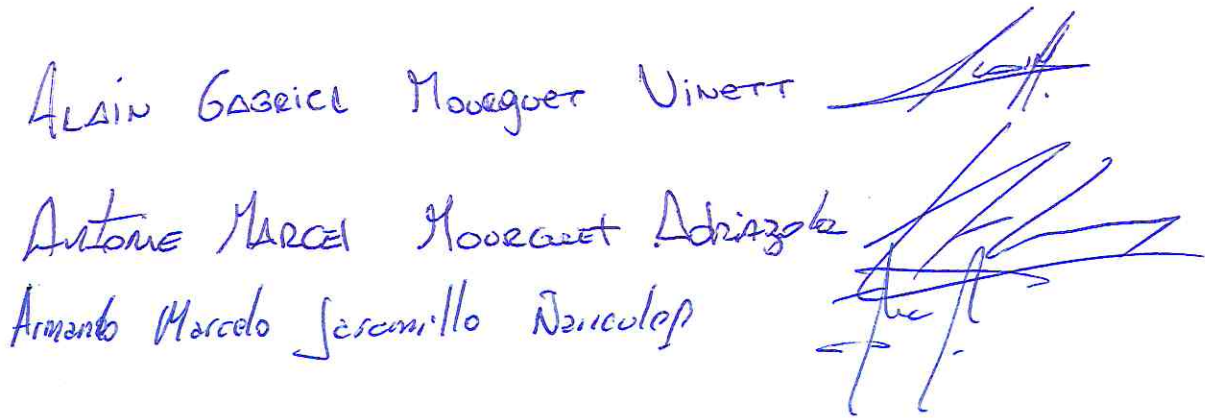 Alain Gabriel Mourguet Vinett
Antoine Marcel Mourguet Adriazola
Armando Marcelo Jaramillo Ñanculef